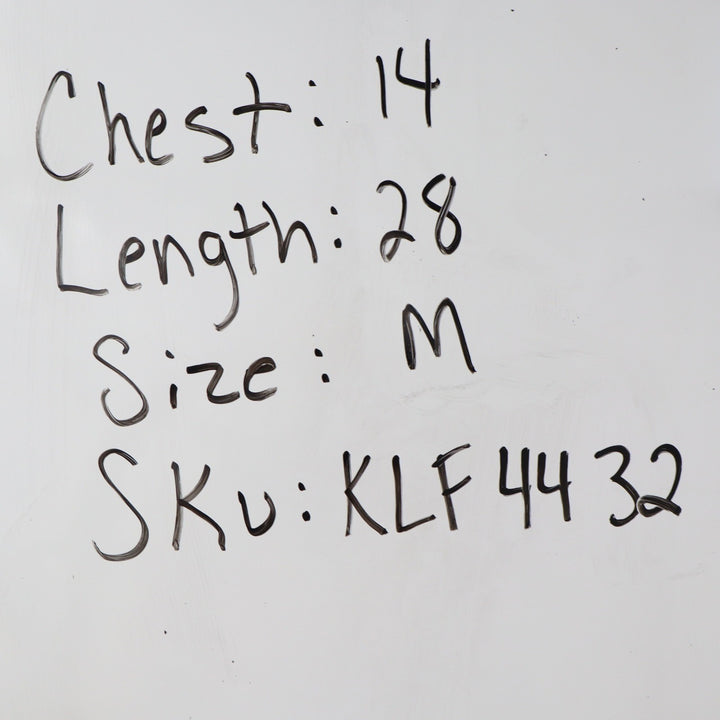 Chest: 14
Length: 28
Size: M
SKU: KLF4432